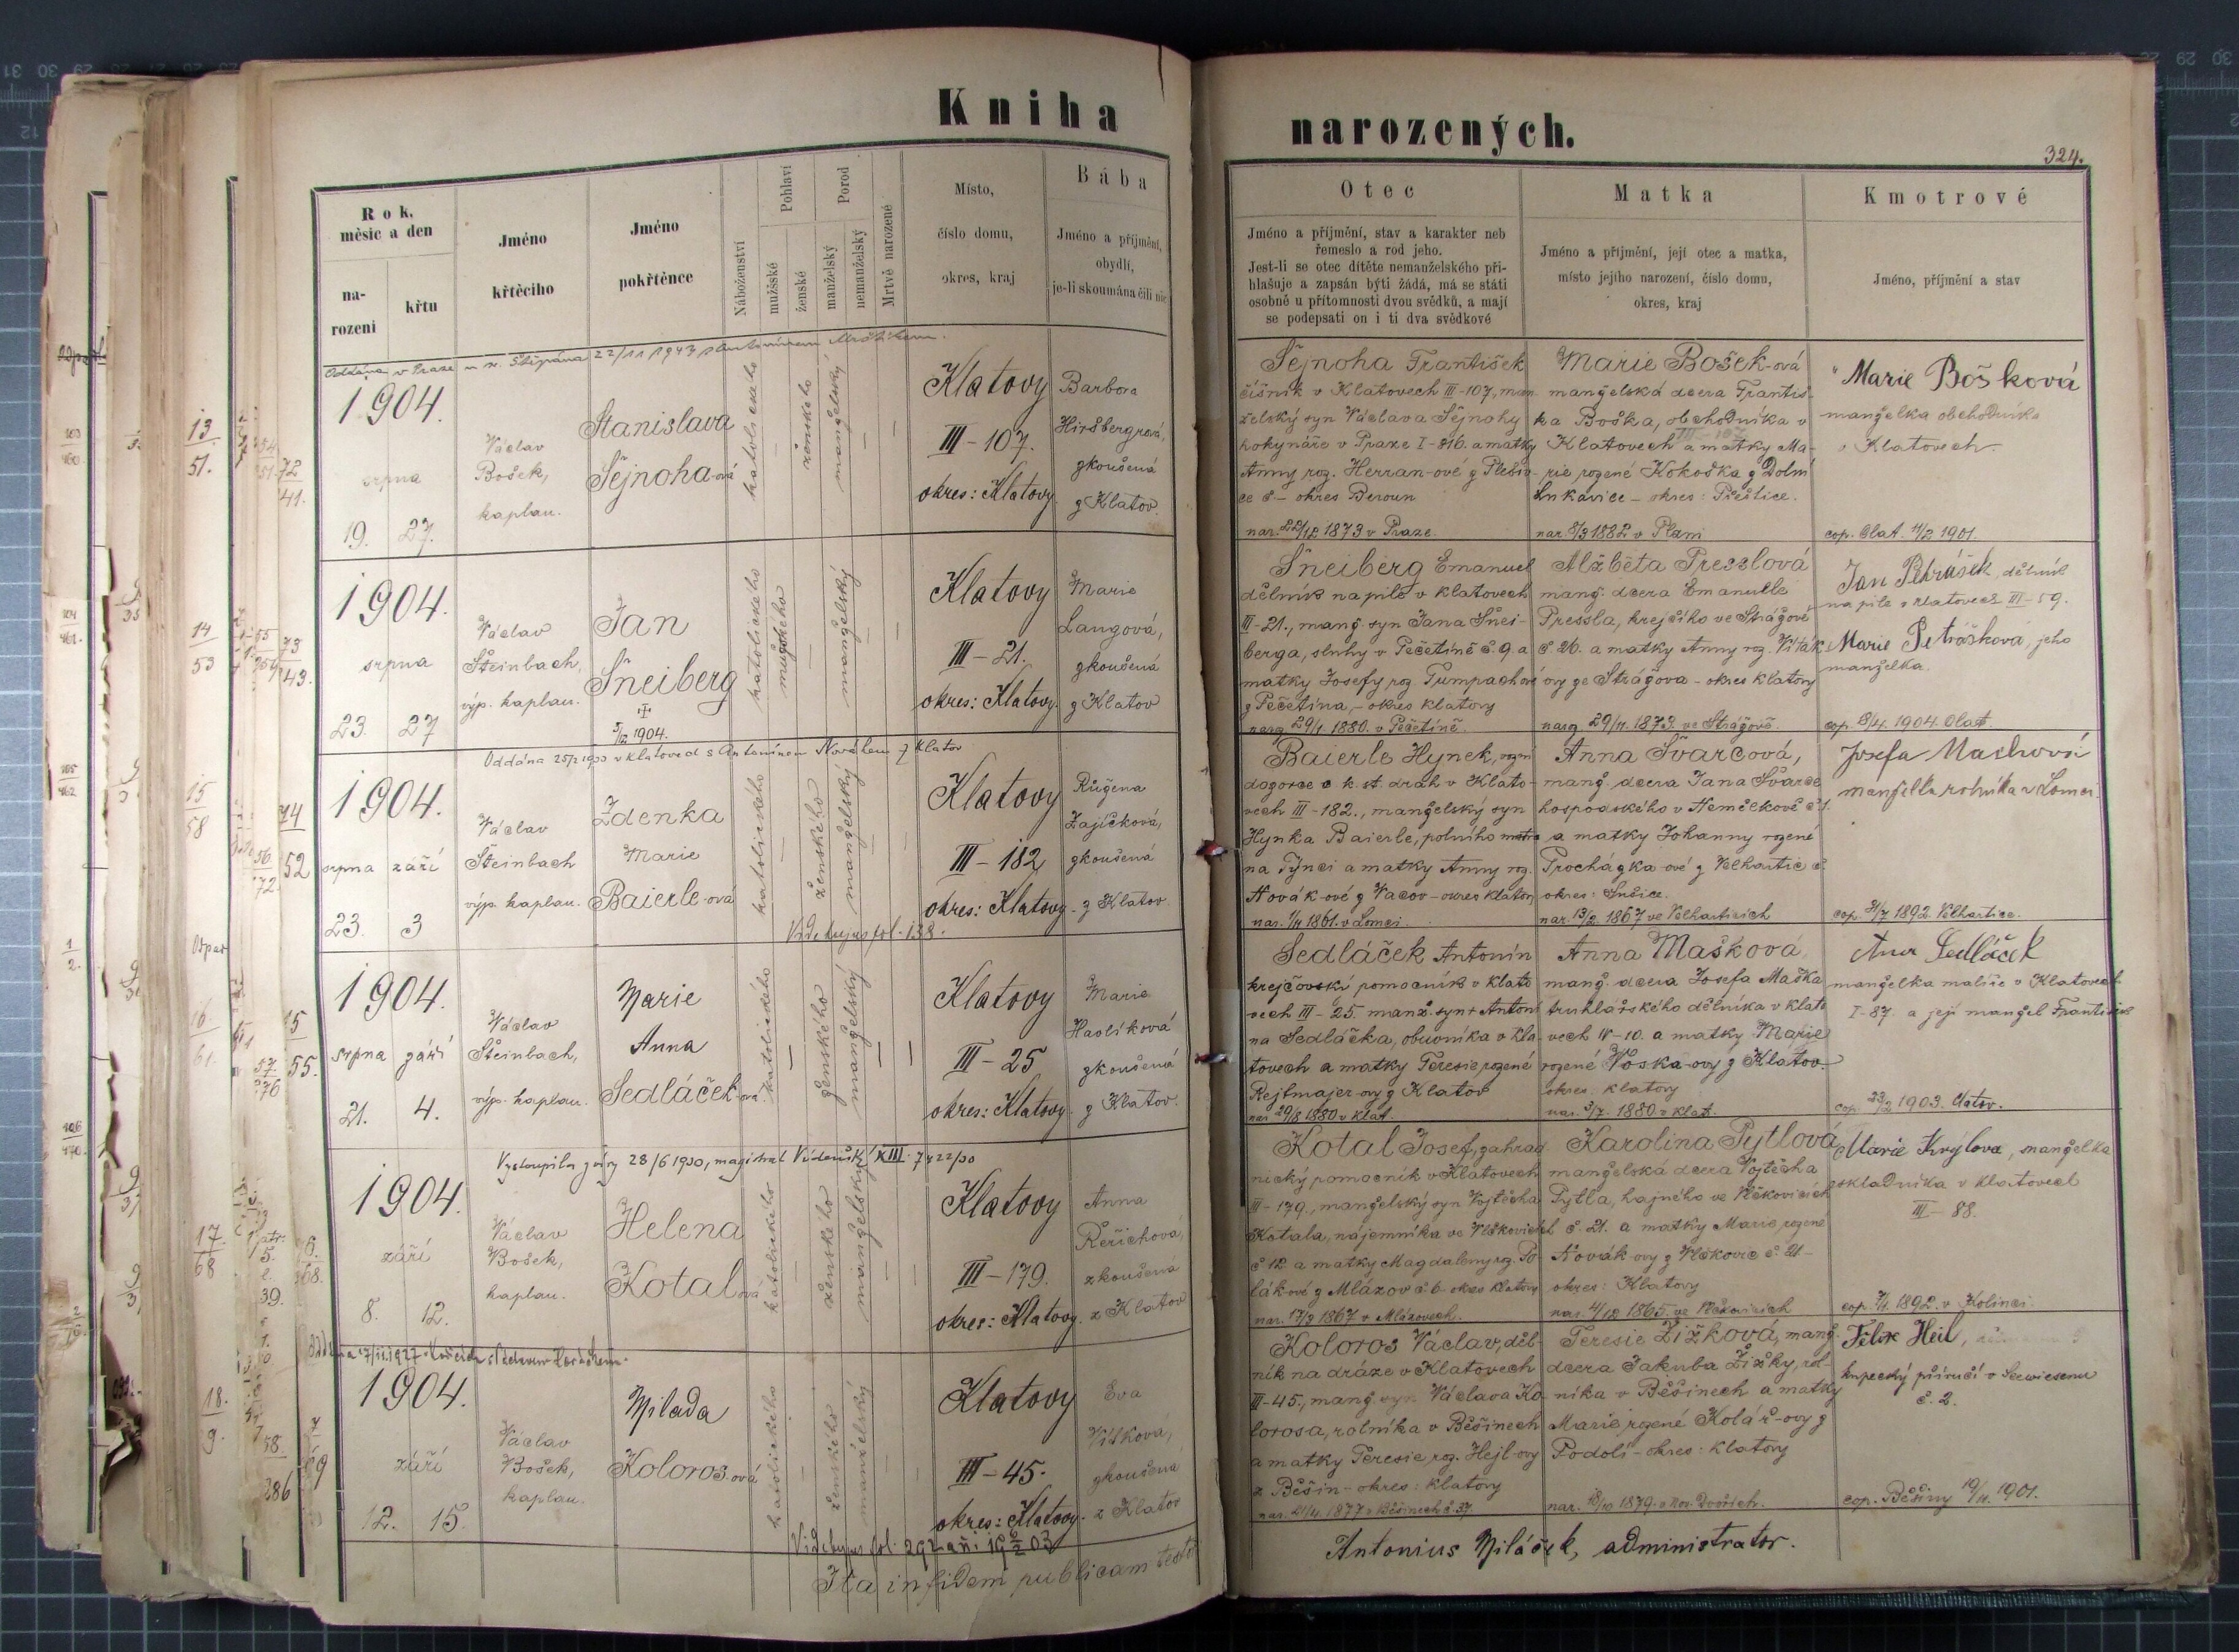 Kniha
narozených.
324.
Rok, měsíc a den
narození
křtu
Jméno křtěcího
Jméno pokřtěnce
Náboženství
Pohlaví
mužské
ženské
Porod
manželský
nemanželský
Mrtvě narozené
Místo,
číslo domu,
okres, kraj
Bába
Jméno a příjmění,
obydlí,
je-li skoumána čili nic
Otec
Jméno a příjmění, stav a karakter neb
řemeslo a rod jeho.
Jest-li se otec dítěte nemanželského při-
hlašuje a zapsán býti žádá, má se státi
osobně u přítomnosti dvou svědků, a mají
se podepsati on i ti dva svědkové
Matka
Jméno a příjmění, její otec a matka,
místo jejího narození, číslo domu,
okres, kraj
Kmotrové
Jméno, příjmění a stav
Oddána v Praze u sv. Štěpána 22/11 1943 s Antonínem
1904.
srpna
19. 27.
Václav
Bošek,
kaplan.
Stanislava
Šejnoha-ová
ženského
manželský
Klatovy
III-107.
okres: Klatovy
Barbora
Hiršbergrová,
zkoušená
z Klatov.
Šejnoha František
číšník v Klatovech III-107, man
želský syn Václava Šejnohy
hokynáře v Praze I-816. a matky
Anny roz. Herran-ové z Plešiv-
ce č - okres Beroun
nar. 22/12 1873 v Praze.
Marie Bošek-ová
manželská dcera Františ-
ka Boška, obchodníka v
Klatovech a matky Ma-
rie rozené Kokoška z Dolní
Lukavice - okres: Přeštice.
nar. 8/3 1882 v Plani
Marie Bošková
manželka obchodníka
v Klatovech.
cop. Clat. 11/2 1901.
1904.
srpna
23. 27
Václav
Šteinbach,
výp. kaplan.
Jan
Šneiberg
5/12 1904.
katolického
mužského
manželský
Klatovy
III-21.
okres: Klatovy
Marie
Langová,
zkoušená
z Klatov
Šneiberg Emanuel
dělník na pile v Klatovech
III-21., manž syn Jana Šnei-
berga, sluhy v Pečetíně č. 9 a
matky Josefy roz Tumpachové
z Pečetína, - okres Klatovy
naroz 29/1. 1880. v Pečetíně.
Alžběta Presslová
manž. dcera Emanuele
Pressla, krejčího ve Strážově
č 26. a matky Anny roz. Viták
ovy ze Strážova - okres Klatovy
naroz 29/11. 1873. ve Strážově.
Jan Petrášek, dělník
na pile v Klatovech III-59.
Marie Petrášková, jeho
manželka.
cop. 8/4. 1904. Clat.
Oddána 25/2 1930 v Klatovech s Antonínem Novákem z Klatov
1904.
srpna září
23. 3
Václav
Šteinbach
výp. kaplan.
Zdenka
Marie
Baierle-ová
katolického
ženského
manželský
Klatovy
III-182
okres: Klatovy
Růžena
Zajíčková,
zkoušená
z Klatov
Vide hujus fol. 138.
Baierle Hynek,
dozorce c k. st. drah v Klato-
vech III-182., manželský syn
Hynka Baierle, polního
na Týnci a matky Anny roz.
Novák-ové z Vacov - okres Klatovy
nar. 1/4 1861. v Lomci
Anna Švarcová,
manž. dcera Jana Švarce
hospodského v Nemčelkově č 1.
a matky Johanny rozené
Procházka-ové z Velhartic č.
okres: Sušice.
nar. 13/2 1867 ve Velharticích
Josefa Machová
manželka rolníka v Lomci.
cop. 31/7 1892. Velhartice.
1904.
srpna září
21. 4.
Václav
Šteinbach,
výp. kaplan.
Marie
Anna
Sedláček-ová
katolického
ženského
manželský
Klatovy
III-25
okres: Klatovy
Marie
Havlíková
zkoušená
z Klatov.
Sedláček Antonín
krejčovský pomocník v Klato
vech III-25. manž. syn + Antoní
na Sedláčka, obuvníka v Kla-
tovech a matky Teresie rozené
Rejlmajer-ovy z Klatov
nar 29/8 1880 v Klat.
Anna Mašková,
manž. dcera Josefa Maška
truhlářského dělníka v Klato
vech IV-10. a matky Marie
rozené Voska-ovy z Klatov.
okres Klatovy
nar. 3/7. 1880. v Klat.
Anna Sedláček
manželka malíře v Klatovech
I-87. a její manžel František
cop. 23/2 1903. Clatov.
Vystoupila z círy 28/6 1930, magistrát Vídeňský XIII. 7422/30
1904.
září
8. 12.
Václav
Bošek,
kaplan.
Helena
Kotalová
katolického
ženského
manželský
Klatovy
III-179.
okres: Klatovy
Anna
Řeřichová,
zkoušená
z Klatov
Kotal Josef, zahrad
nický pomocník v Klatovech
III-179., manželský syn Vojtěcha
Kotala, nájemníka ve Vlčkovicích
č 12 a matky Magdaleny roz. Po-
lák-ové z Mlázov č 6 - okres Klatovy
nar. 17/3 1867 v Mlázovech.
Karolina Pytlová
manželská dcera Vojtěcha
Pytla, hajného ve Vlčkovicích
č. 21. a matky Marie, rozené
Novák-ovy z Vlčkovic č 21-
okres: Klatovy
nar. 4/12 1865. ve Vlčkovicích
Marie Krýlova, manželka
skladníka v Klatovech
III-88.
cop. 7/1. 1892. v Kolinci.
1904.
září
12. 15.
Václav
Bošek,
kaplan.
Milada
Koloros-ová
katolického
ženského
manželský
Klatovy
III-45.
okres: Klatovy.
Eva
Vítková,
zkoušená
z Klatov
Koloros Václav, děl-
ník na dráze v Klatovech
III-45., manž. syn Václava Ko-
lorosa, rolníka v Běšinech
a matky Teresie roz. Hejl-ovy
z Běšin - okres: Klatovy
nar. 21/4. 1877 v Běšinech č. 37.
Teresie Žižková, manž.
dcera Jakuba Žižky, rol-
níka v Běšinech a matky
Marie, rozené Kolář-ovy z
Podolí - okres: Klatovy
nar. 18/10 1879. v Nov. Dvořích.
Felix Heil,
kupecký příručí v Seewiesenu
č. 2.
cop. Běšiny 19/11. 1901.
Vide hujus fol. 292
Ita in fidem publicam testor
Antonius Miláček, administrator.